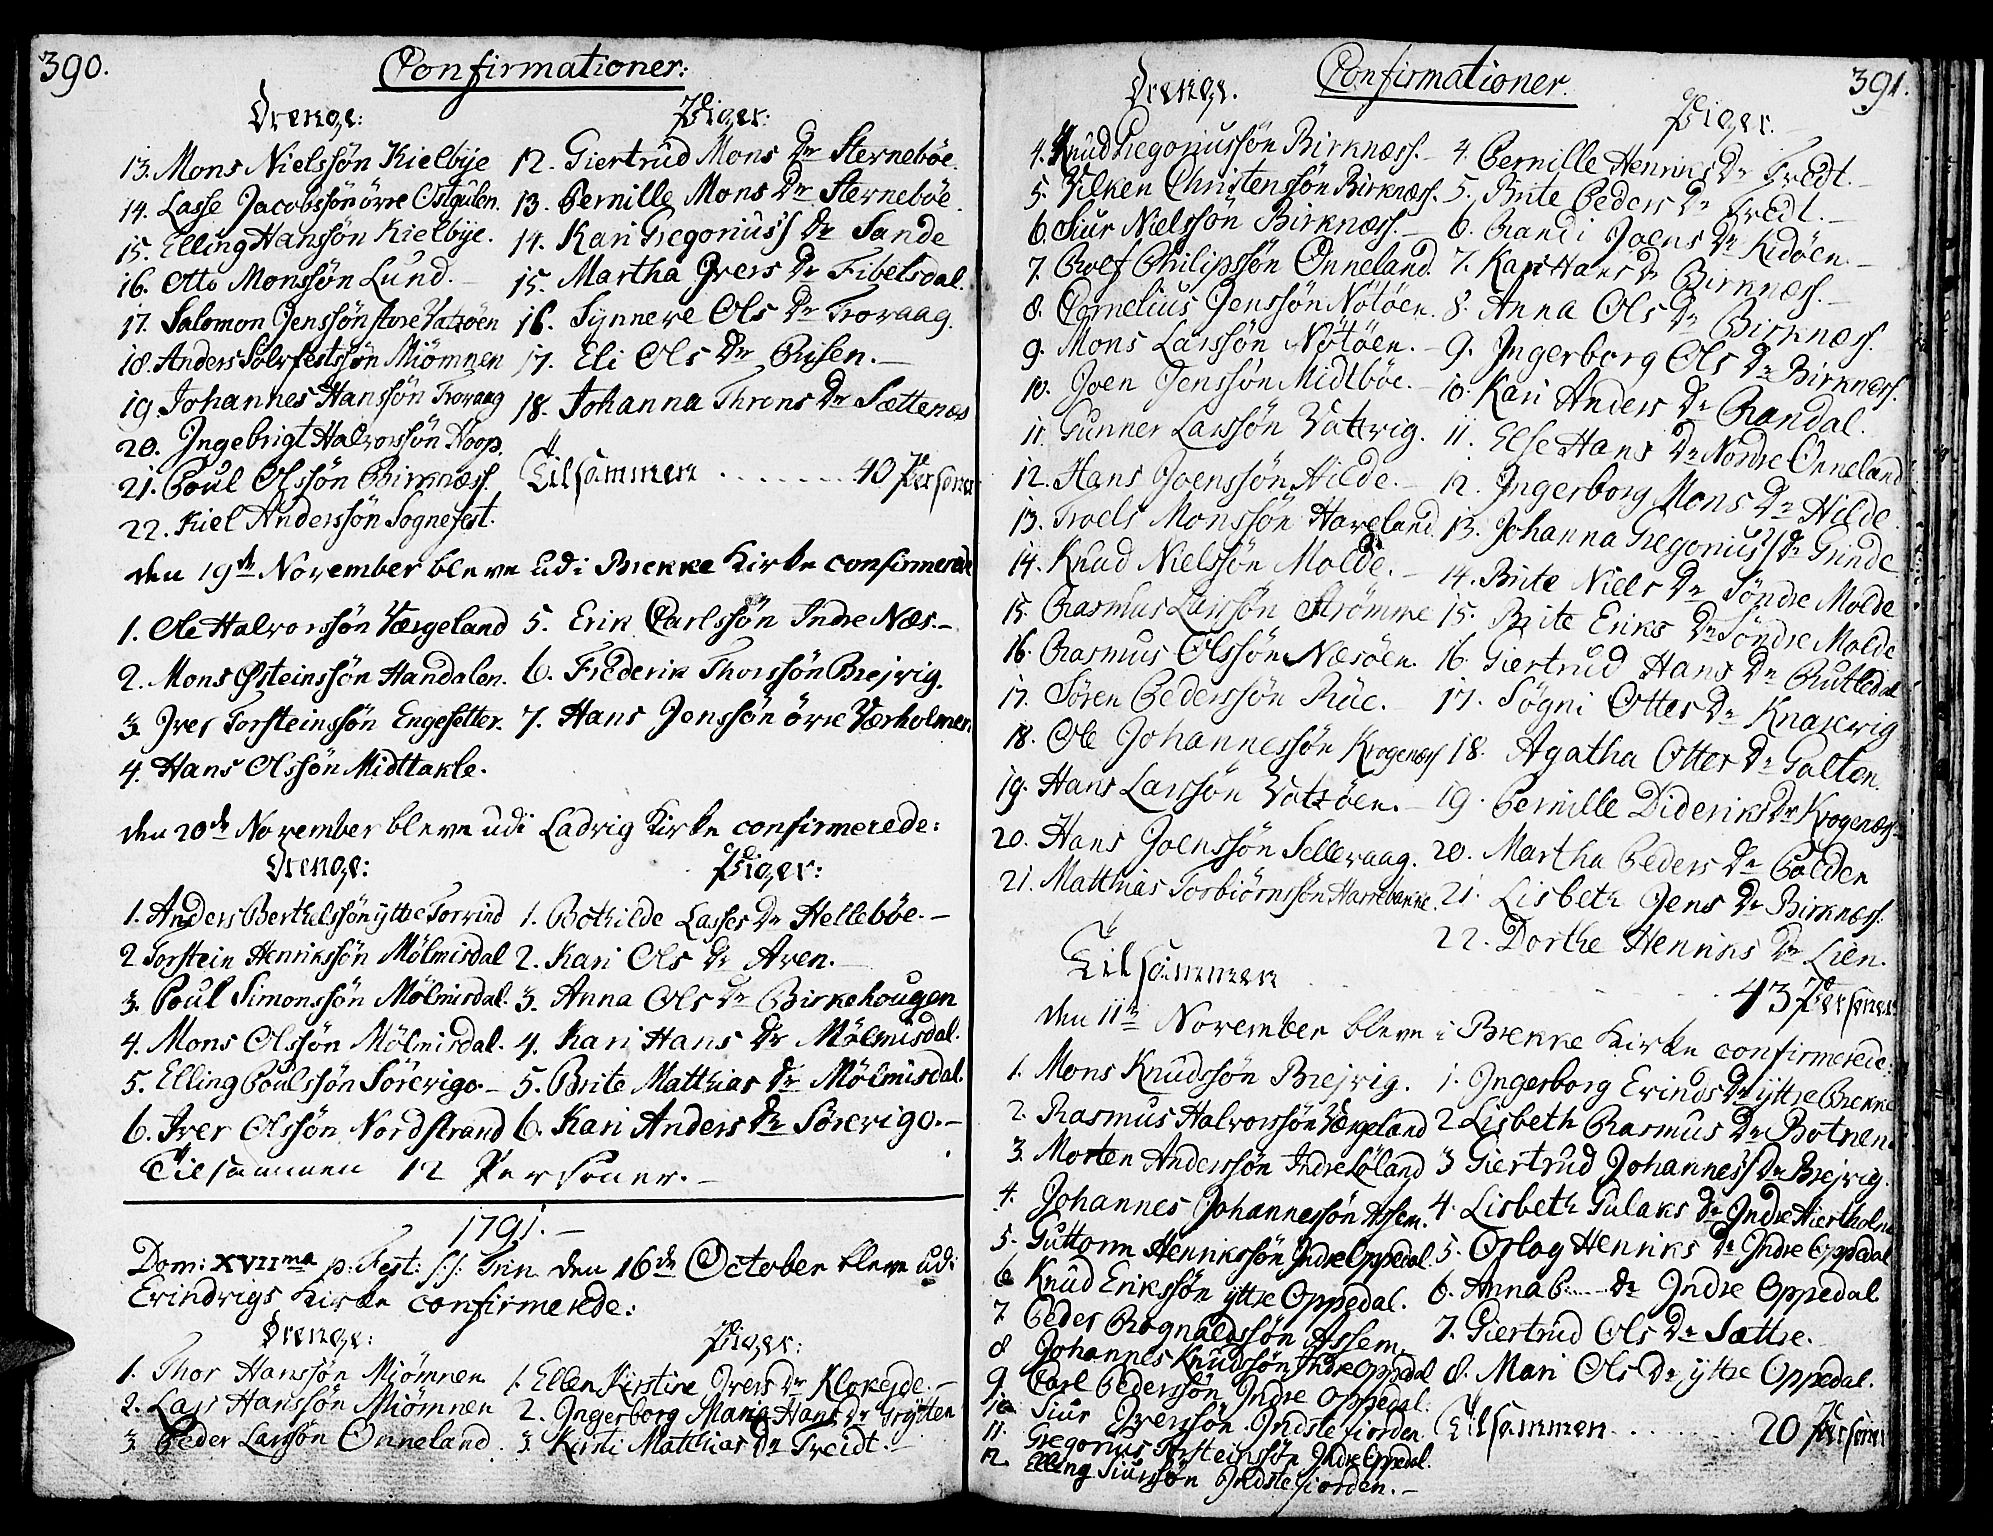 390.
Confirmationer:
Drenge:
13. Mons Nielssön Kielbye
14. Lasse Jacobssön övre Ostgulen.
15. Elling Hanssön Kielbye.
16. Otto Monssön Lund.
17. Salomon Jenssön store Vatzöen
18. Anders Solvfestssön Miömnen
19. Johannes Hanssön Torvaag
20. Ingebrigt Halvorssön Hoop.
21. Poul Olssön Birknæss.
22. Kiel Anderssön Sognefest.
Piger:
12. Giertrud Mons Dr Sternebôe.
13. Pernille Mons Dr Sternebôe.
14. Kari Gregoriuss Dr Sande
15. Martha Ivers Dr Fibelsdal.
16. Synneve Ols Dr Torvaag.
17. Eli Ols Dr Risen.
18. Johanna Throns Dr Sættenæs
Tilsammen . . . . . . . 40 Personer
den 19de November bleve udi Brekke Kirke confirmerede
1. Ole Halvorssön Værgeland
2. Mons Østeinssön Handalen.
3. Iver Torsteinssön Engesetter.
4. Hans Olssön Midttakle.
5. Erik Carlssön Indre Næs.
6. Friderik Thorssön Brejvig.
7. Hans Jenssön övre Værholmen.
den 20de November bleve udi Ladvig Kirke confirmerede:
Drenge:
1. Anders Berthelssön ytte Torvind
2. Torstein Henrikssön Mölmisdal
3. Poul Simonssön Mölmisdal.
4. Mons Olssön Mölmisdal.
5. Elling Poulssön Sörevigo.
6. Iver Olssön Nordstrand
Piger:
1. Bothilde Lasses Dr Hellebôe.
2. Kari Ols Dr Aven.
3. Anna Ols Dr Birkehougen
4. Kari Hans Dr Mölmisdal.
5. Brite Matthias Dr Mölmisdal.
6. Kari Anders Dr Sörevigo.
Tilsammen 12 Personer.
1791.
Dom: XVIIma p. Fest: S.S. Trin den 16de October bleve udi
Evindvigs Kirke confirmerede:
Drenge:
1. Thor Hanssön Miömnen
2. Lars Hanssön Miömnen
3. Peder Larssön Onneland.
Piger:
1. Ellen Kirstine Ivers Dr Klokejde.
2. Ingerborg Maria Hans Dr Trytten
3. Kirsti Matthias Dr Treidt.
391.
Confirmationer.
Drenge.
4. Knud Gregoriussön Birknæss.
5. Vilken Christenssön Birknæss.
6. Siur Nielssön Birknæss.
7. Rolf Philipssön Onneland.
8. Cornelius Jenssön Nötöen.
9. Mons Larssön Nötöen.
10. Joen Jenssön Midtböe.
11. Gunner Larssön Vattvig.
12. Hans Joenssön Hilde.
13. Troels Monssön Haveland.
14. Knud Nielssön Molde.
15. Rasmus Larssön Strömme
16. Rasmus Olssön Næsöen.
17. Sören Pederssön Rue.
18. Ole Johannessön Krogenæss
19. Hans Larssön Vatzöen.
20. Hans Joenssön Selleraag.
21. Matthias Torbiörnssön
Piger.
4. Pernille Henriks Dr Tredt.
5. Brite Peders Dr Tredt.
6. Randi Joens Dr Kidöen.
7. Kari Hans Dr Birknæss.
8. Anna Ols Dr Birknæss.
9. Ingerborg Ols Dr Birknæss.
10. Kari Anders Dr Randal.
11. Else Hans Dr Nordre Onneland
12. Ingerborg Mons Dr Hilde.
13. Johanna Gregoriuss Dr Grinde
14. Brite Niels Dr Söndre Molde
15. Brite Eriks Dr Söndre Molde
16. Giertrud Hans Dr Rutledal
17. Sögni Otters Dr Knarrvig
18. Agatha Otters Dr Galten.
19. Pernille Dideriks Dr Krogenæss
20. Martha Peders Dr Polden
21. Lisbeth Jens Dr Birknæss.
22. Dorthe Henriks Dr Lien.
Tilsammen . . . . . . 43 Personer
den 11te November bleve i Brekke Kirke confirmerede:
1. Mons Knudssön Brejvig.
2. Rasmus Halvorssön Værgeland
3. Morten Anderssön Indre Löland
4. Johannes Johannessön Assem.
5. Guttorm Henrikssön Indre Oppedal.
6. Knud Erikssön yttre Oppedal.
7. Peder Rognaldssön Assem.
8. Johannes Knudssön Indre Oppedal
9. Carl Pederssön Indre Oppedal.
10. Siur Iverssön Indstefiorden.
11. Gregorius Torsteinssön Indre Oppedal.
12. Elling Siurssön Indstefiorden.
1. Ingerborg Evinds Dr yttre Brekke
2. Lisbeth Rasmus Dr Botnen.
3. Giertrud Johannes Dr Brejvig.
4. Lisbeth Gulaks Dr Indre Hiertholm
5. Orlog Henriks Dr Indre Oppedal
6. Anna Dr Indre Oppedal
7. Giertrud Ols Dr Sættre.
8. Mari Ols Dr yttre Oppedal.
Tilsammen . . . . . . 20 Personer